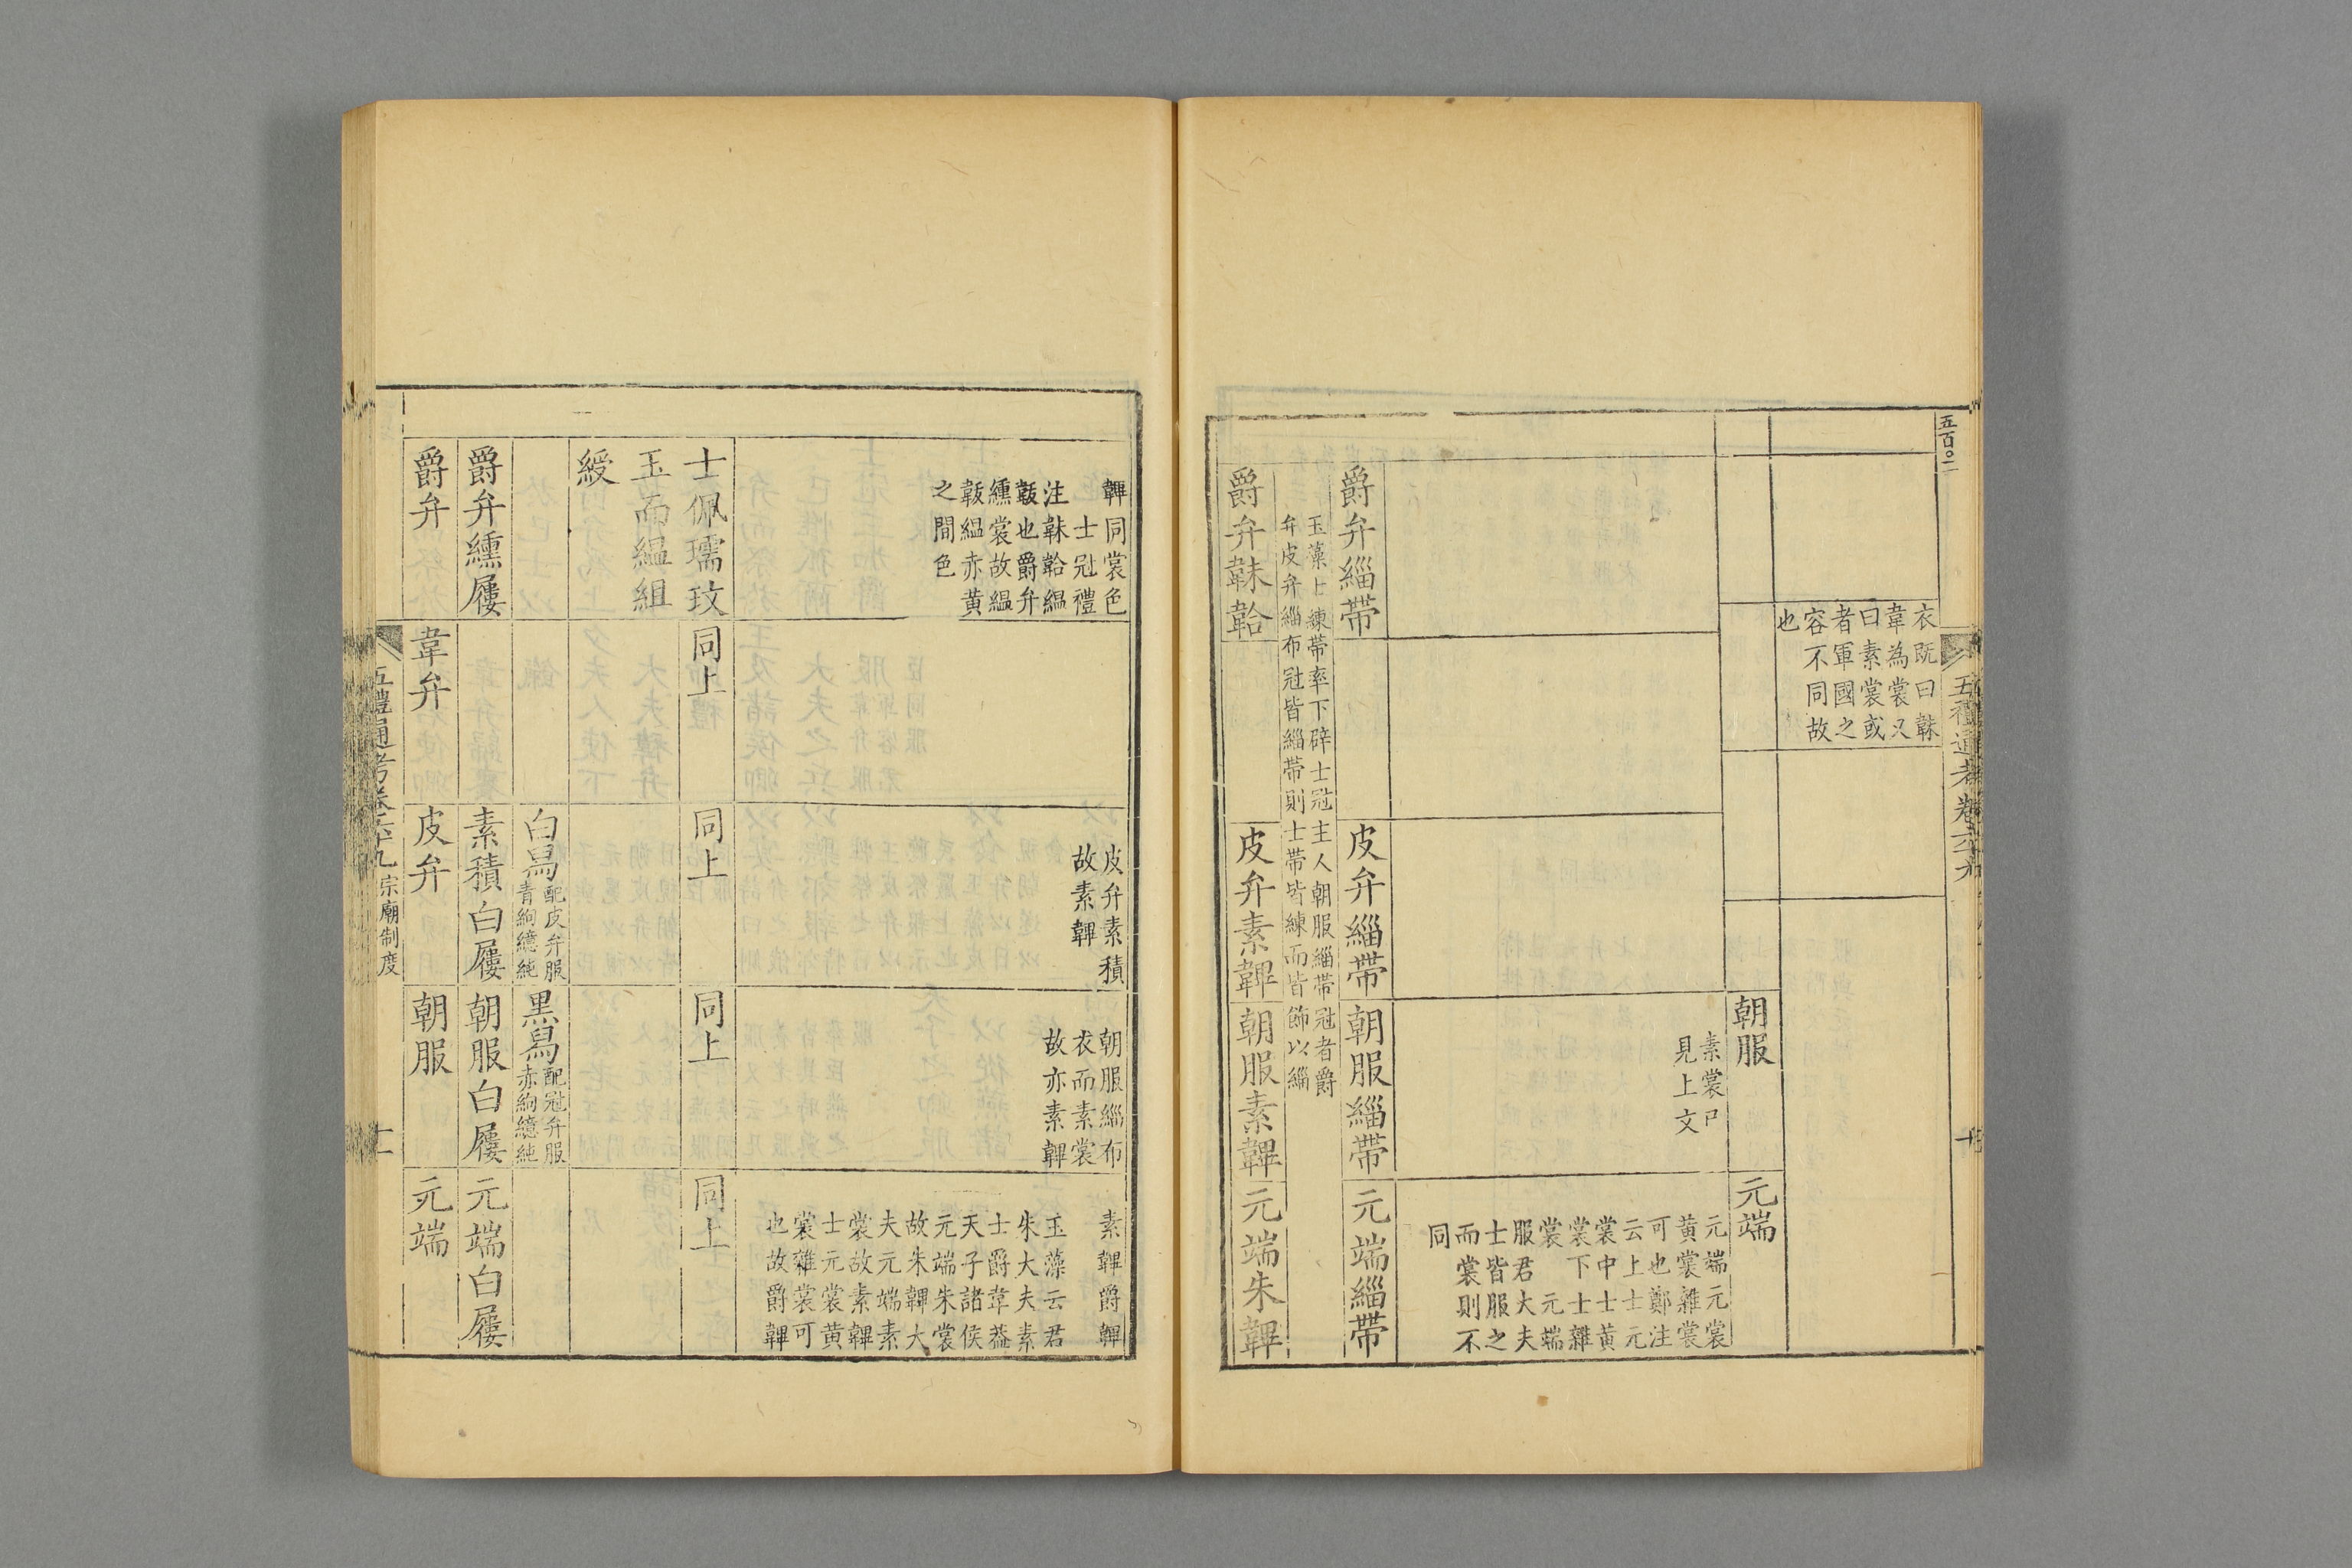 五百〇二
五禮通考卷六十九
衣既曰韎
韋為裳又
曰素裳或
者軍國之
容不同故
也
朝服
元端
素裳已
見上文
元端元裳
黃裳雜裳
可也鄭注
云上士元
裳中士黃
裳下士雜
裳 元端
服君大夫
士皆服之
而裳則不
同
爵弁緇帶
皮弁緇帶
朝服緇帶
元端緇帶
玉藻士練帶率下辟士冠主人朝服緇帶冠者爵
弁皮弁緇布冠皆緇帶則士帶皆練而皆飾以緇
爵弁韎韐
皮弁素韠
朝服素韠
元端朱韠
韠同裳色
士冠禮
注韎韐緼
韍也爵弁
纁裳故緼
韍緼赤黃
之間色
皮弁素積
故素韠
朝服緇布
衣而素裳
故亦素韠
素韠爵韠
玉藻云君
朱大夫素
士爵韋葢
天子諸侯
元端朱裳
故朱韠大
夫元端素
裳故素韠
士元裳黃
裳雜裳可
也故爵韠
士佩瓀玟
玉而緼組
綬
同上
同上
同上
同上
白舄配皮弁服
青絇繶純
黑舄配冠弁服
赤絇繶純
爵弁纁屨
素積白屨
朝服白屨
元端白屨
爵弁
韋弁
皮弁
朝服
元端
五禮通考卷六十九 宗廟制度
十一